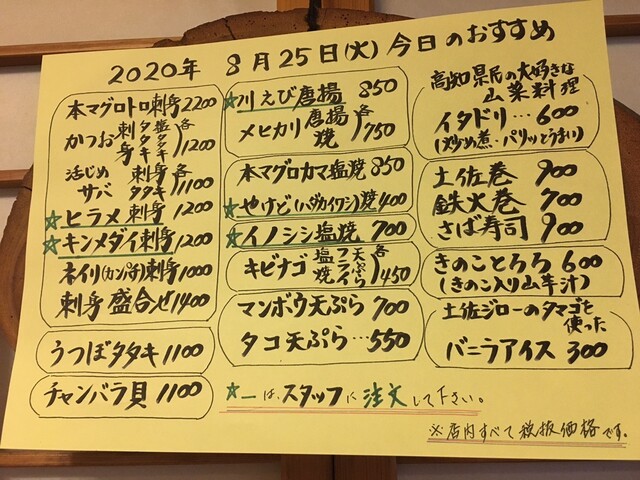 2020年 8月25日(火)今日のおすすめ
本マグロトロ刺身 2200
かつお 刺身 タタキ 塩タタキ 各1200
活じめサバ 刺身 タタキ 各1100
☆ヒラメ刺身 1200
☆キンメダイ刺身 1200
ネイリ(カンパチ)刺身 1000
刺身盛合せ 1400
うつぼタタキ 1100
チャンバラ貝 1100
☆川えび唐揚 850
メヒカリ 唐揚 焼 各750
本マグロカマ塩焼 850
☆やけど(ハダカイワシ)焼 400
☆イノシシ塩焼 700
キビナゴ 塩焼 フライ 天ぷら 各450
マンボウ天ぷら 700
タコ天ぷら…550
☆―は、スタッフに注文して下さい。
高知県民の大好きな
山菜料理
イタドリ…600
(炒め煮・パリッとうまい)
土佐巻 900
鉄火巻 700
さば寿司 900
きのことろろ 600
(きのこ入り山芋汁)
土佐ジローのタマゴを
使った
バニラアイス 300
※店内すべて税抜価格です。